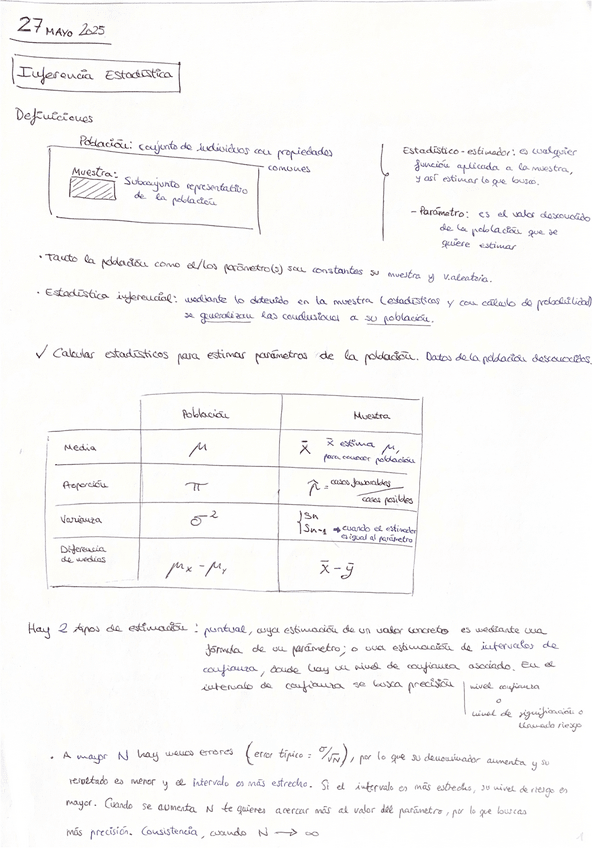 27 MAYO 2025
Inferencia Estadística
Definiciones
Población: conjunto de individuos con propiedades
comunes
Muestra:
Subconjunto representativo
de la población
Estadístico-estimador: es cualquier
función aplicada a la muestra,
y así estimar lo que busco.
- Parámetro: es el valor desconocido
de la población que se
quiere estimar
· Tanto la población como el/los parámetro(s) son constantes su muestra y V.aleatoria.
· Estadística inferencial: mediante lo obtenido en la muestra (estadísticos y con cálculo de probabilidad)
se generalizan las conclusiones a su población.
✓ Calcular estadísticos para estimar parámetros de la población. Datos de la población desconocidos.
Población Muestra
Media μ x̄ x̄ estima μ,
para conocer población
Proporción π p̂ = casos favorables
casos posibles
Varianza σ² Sn
Sn-1 → cuando el estimador
es igual al parámetro
Diferencia
de medias μx - μy x̄ - ȳ
Hay 2 tipos de estimación: puntual, cuya estimación de un valor concreto es mediante una
fórmula de un parámetro; o una estimación de intervalos de
confianza, donde hay un nivel de confianza asociado. En el
intervalo de confianza se busca precisión
nivel confianza
o
nivel de significación o
llamado riesgo
· A mayor N hay menos errores (error típico: σ/√N), por lo que su denominador aumenta y su
resultado es menor y el intervalo es más estrecho. Si el intervalo es más estrecho, su nivel de riesgo es
mayor. Cuando se aumenta N te quieres acercar más al valor del parámetro, por lo que buscas
más precisión. Consistencia, cuando N → ∞
1